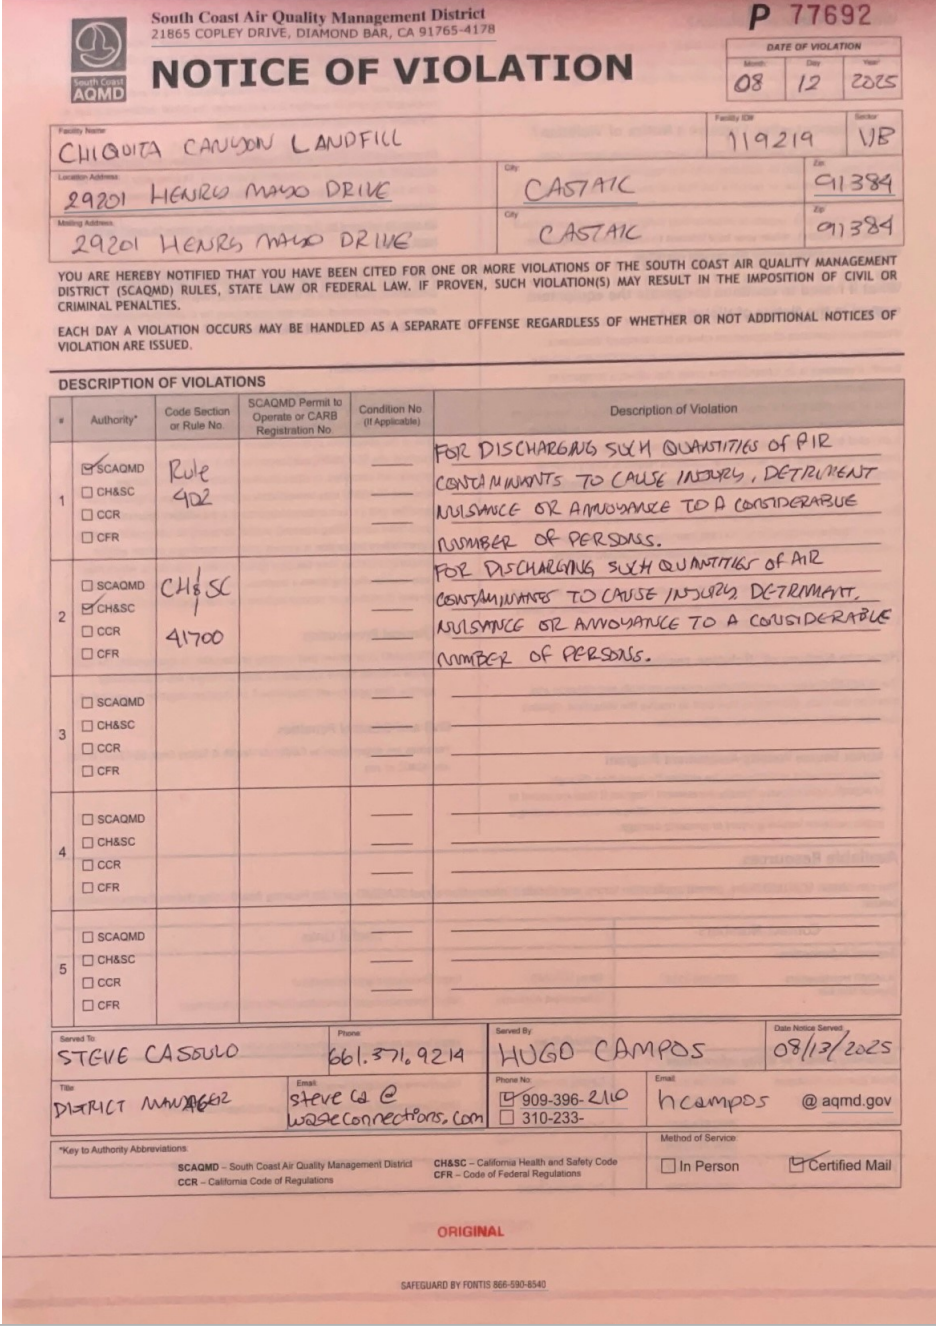 South Coast Air Quality Management District
21865 COPLEY DRIVE, DIAMOND BAR, CA 91765-4178
NOTICE OF VIOLATION
South Coast
AQMD
P 77692
DATE OF VIOLATION
Month: Day Year:
08 12 2025
Facility Name Facility ID#: Sector:
CHIQUITA CANYON LANDFILL 119219 VB
Location Address: City: Zip:
29201 HENRY MAYO DRIVE CASTAIC 91384
Mailing Address: City Zip:
29201 HENRY MAYO DRIVE CASTAIC 91384
YOU ARE HEREBY NOTIFIED THAT YOU HAVE BEEN CITED FOR ONE OR MORE VIOLATIONS OF THE SOUTH COAST AIR QUALITY MANAGEMENT
DISTRICT (SCAQMD) RULES, STATE LAW OR FEDERAL LAW. IF PROVEN, SUCH VIOLATION(S) MAY RESULT IN THE IMPOSITION OF CIVIL OR
CRIMINAL PENALTIES.
EACH DAY A VIOLATION OCCURS MAY BE HANDLED AS A SEPARATE OFFENSE REGARDLESS OF WHETHER OR NOT ADDITIONAL NOTICES OF
VIOLATION ARE ISSUED.
DESCRIPTION OF VIOLATIONS
# Authority* Code Section or Rule No. SCAQMD Permit to Operate or CARB Registration No. Condition No. (If Applicable) Description of Violation
1
SCAQMD
CH&SC
CCR
CFR
Rule
402
FOR DISCHARGING SUCH QUANTITIES OF AIR
CONTAMINANTS TO CAUSE INJURY, DETRIMENT
NUISANCE OR ANNOYANCE TO A CONSIDERABLE
NUMBER OF PERSONS.
2
SCAQMD
CH&SC
CCR
CFR
CH&SC
41700
FOR DISCHARGING SUCH QUANTITIES OF AIR
CONTAMINANTS TO CAUSE INJURY, DETRIMENT,
NUISANCE OR ANNOYANCE TO A CONSIDERABLE
NUMBER OF PERSONS.
3
SCAQMD
CH&SC
CCR
CFR
4
SCAQMD
CH&SC
CCR
CFR
5
SCAQMD
CH&SC
CCR
CFR
Served To Phone: Served By: Date Notice Served:
STEVE CASSULO 661.371.9214 HUGO CAMPOS 08/13/2025
Title Email: Phone No: Email
DISTRICT MANAGER
steve ca @
wasteconnections.com
909-396-2110
310-233-
hcampos @ aqmd.gov
*Key to Authority Abbreviations:
SCAQMD – South Coast Air Quality Management District
CCR – California Code of Regulations
CH&SC – California Health and Safety Code
CFR – Code of Federal Regulations
Method of Service:
In Person Certified Mail
ORIGINAL
SAFEGUARD BY FONTIS 866-590-8540